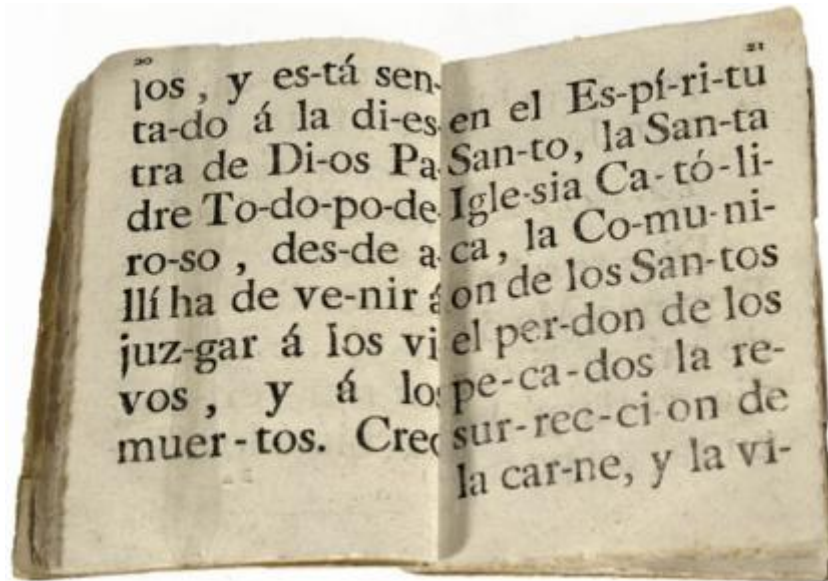 20
los, y es-tá sen-
ta-do á la di-es-
tra de Di-os Pa-
dre To-do-po-de-
ro-so, des-de a-
llí ha de ve-nir á
juz-gar á los vi
vos, y á los
muer-tos. Creo
21
en el Es-pí-ri-tu
San-to, la San-ta
Igle-sia Ca-tó-li-
ca, la Co-mu-ni-
on de los San-tos
el per-don de los
pe-ca-dos la re-
sur-rec-ci on de
la car-ne, y la vi-